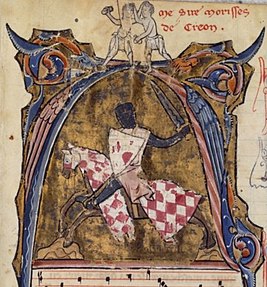 me sire morisses
de creon.